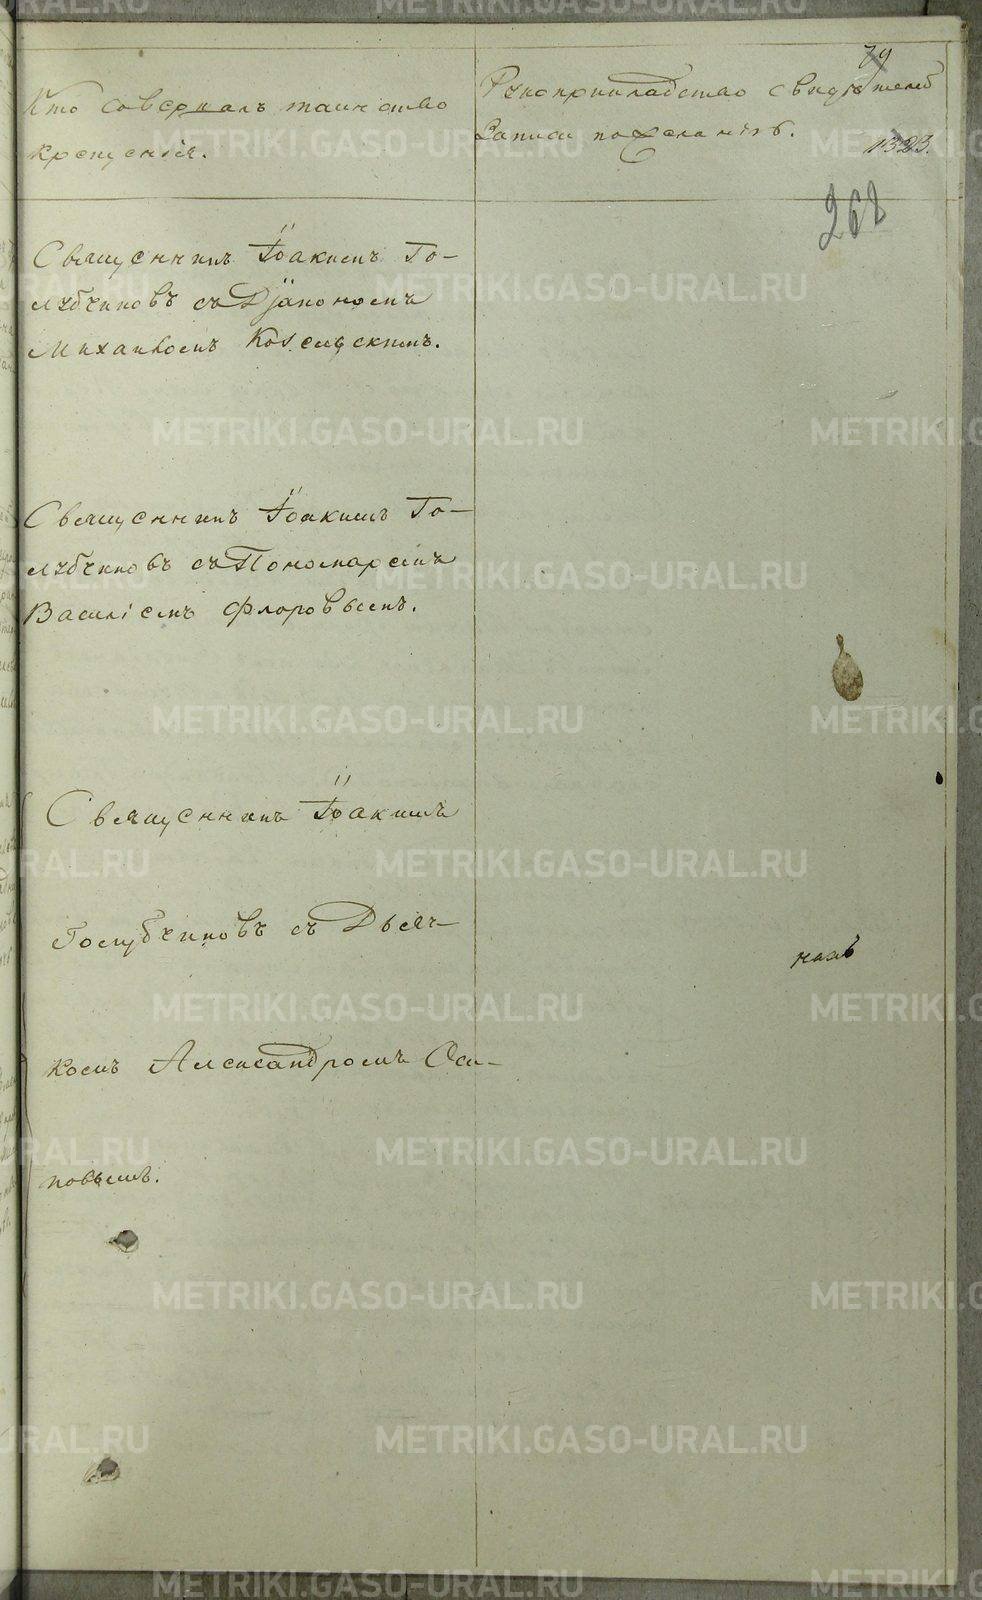 79
Кто совершалъ таинство
крещенія.
Рукоприкладство свидѣтелей
записи по желанію.
1323.
262
Священникъ Іоакимъ Го-
лубчиковъ съ Діакономъ
Михаиломъ
Священникъ Іоакимъ Го-
лубчиковъ съ Пономаремъ
Василіемъ Флоровымъ.
Священникъ Іоакимъ
Голубчиковъ съ Дьяч-
комъ Александромъ Оси-
повымъ.
METRIKI.GASO-URAL.RU